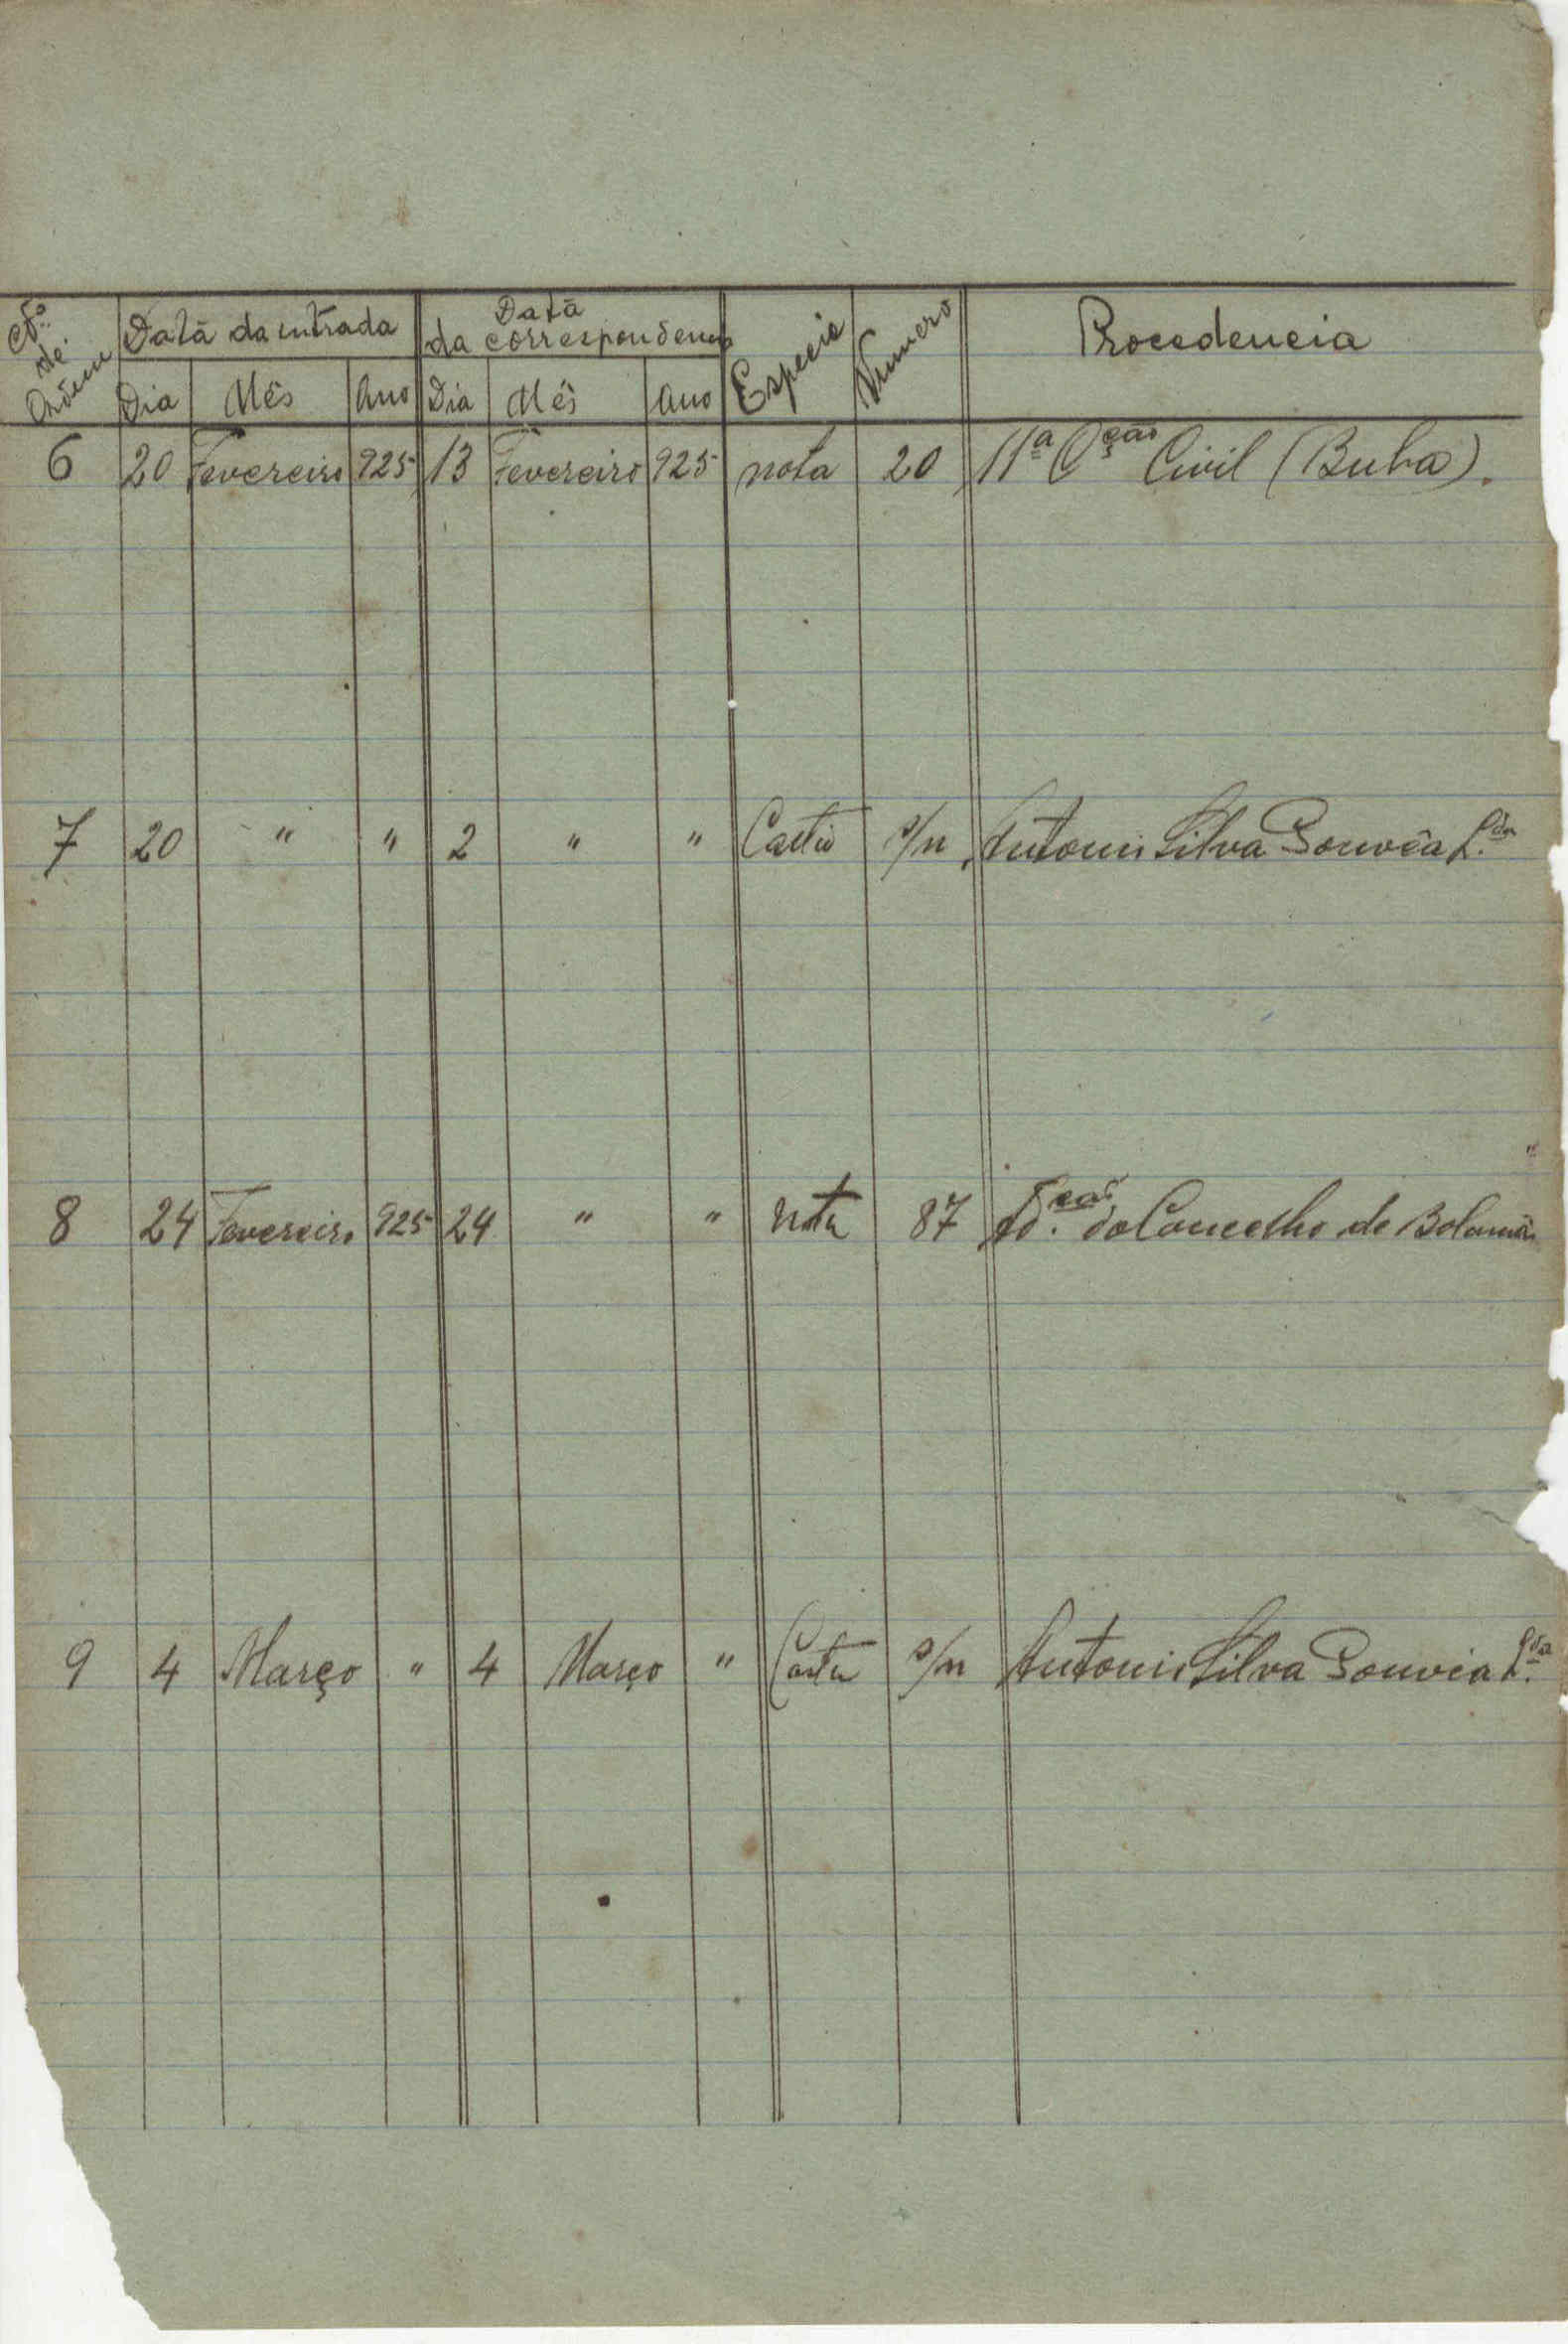 Nº de Ordem | Data da entrada | Data da correspondencia | Especie | Numero | Procedencia
Dia | Mês | Ano | Dia | Mês | Ano
6 | 20 | Fevereiro | 925 | 13 | Fevereiro | 925 | nota | 20 | 11ª Civil (Buba).
7 | 20 | " | " | 2 | " | " | Carta | s/n | Antonio Silva Gouvêa L.da
8 | 24 | Fevereiro | 925 | 24 | " | " | nota | 87 | Ad.ção do Concelho de Bolama
9 | 4 | Março | " | 4 | Março | " | Carta | s/n | Antonio Silva Gouvêa L.da